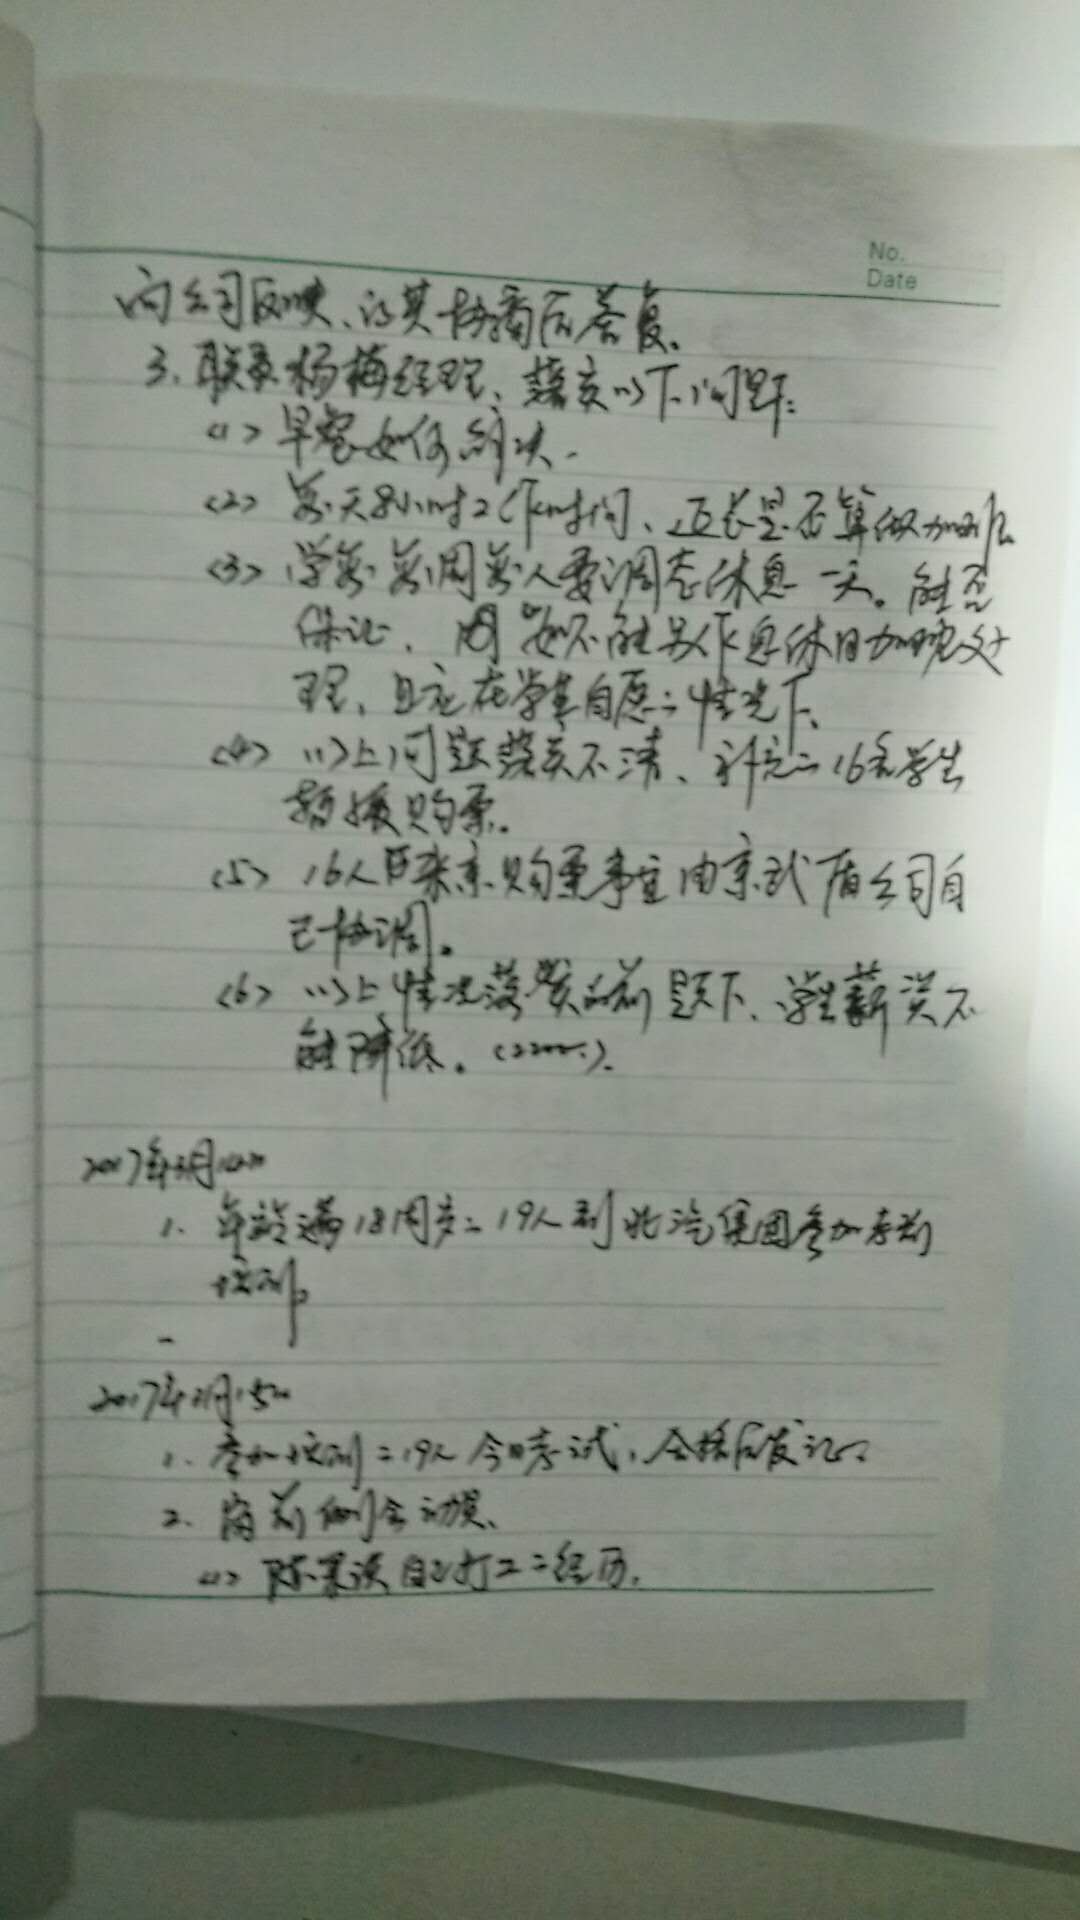 No.
Date
向公司反映、让其协商后答复。
3、联系杨梅经理、落实以下问题:
<1> 早餐如何解决.
<2> 每天8小时工作时间、延长是否算做加班
<3> 学生每周每人要调态休息一天。能否
保证、如不能 休息日加班处
理、且应在学生自愿的情况下、
<4> 以上问题落实不清、补充的16名学生
暂缓购票。
<5> 16人 来京购票事宜由京武盾公司自
己协调。
<6> 以上情况落实的前题下、学生薪资不
能降低。
2017年 月
1. 年龄满18周岁的19人到北汽集团参加考前
培训。
2017年 月15日
1. 参加培训的19人今日考试,合格后发证。
2. 岗前 会动员、
<1> 陈 谈自己打工的经历.